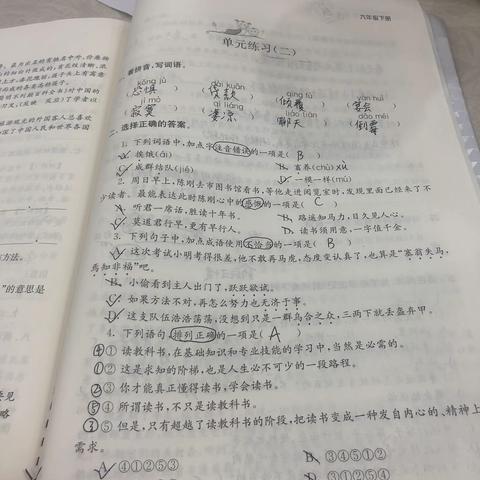 六年级下册
单元练习(二)
一、看拼音,写词语。
kǒng jù dài kuǎn qīng fù yàn huì
(恐惧) (贷款) (倾覆) (宴会)
jì mò qī liáng liáo tiān dǎo méi
(寂寞) (凄凉) (聊天) (倒霉)
二、选择正确的答案。
1. 下列词语中,加点字注音错误的一项是( B )
A. 挨饿(ái) B. 畜养(chù) xù
C. 成群结队(jié) D. 一模一样(mú)
2. 周日早上,陈刚去市图书馆看书,等他走进阅览室时,发现里面已经来了不
少读者。最能表达此时陈刚心中的感慨的一项是( C )
A. 听君一席话,胜读十年书。 B. 路遥知马力,日久见人心。
C. 莫道君行早,更有早行人。 D. 读书须用意,一字值千金。
3. 下列句子中,加点成语使用不恰当的一项是( B )
A. 这次考试小明考得很差,他不敢再马虎,态度变认真了,也算是“塞翁失马,
焉知非福”吧。
B. 小偷看到主人出门了,跃跃欲试。
C. 如果方法不对,再怎么努力也无济于事。
D. 这支队伍浩浩荡荡,没想到只是一群乌合之众,三两下就丢盔弃甲。
4. 下列语句排列正确的一项是( A )
④① 读教科书,在基础知识和专业技能的学习中,当然是必需的。
①② 这是求知的阶梯,也是人生必不可少的一段路程。
②③ 你才能真正懂得读书,学会读书。
⑤④ 所谓读书,不只是读教科书。
③⑤ 但是,只有超越了读教科书的阶段,把读书变成一种发自内心的、精神上
需求。
A. ④①②⑤③ B. ③④⑤①②
D. ③①②⑤④